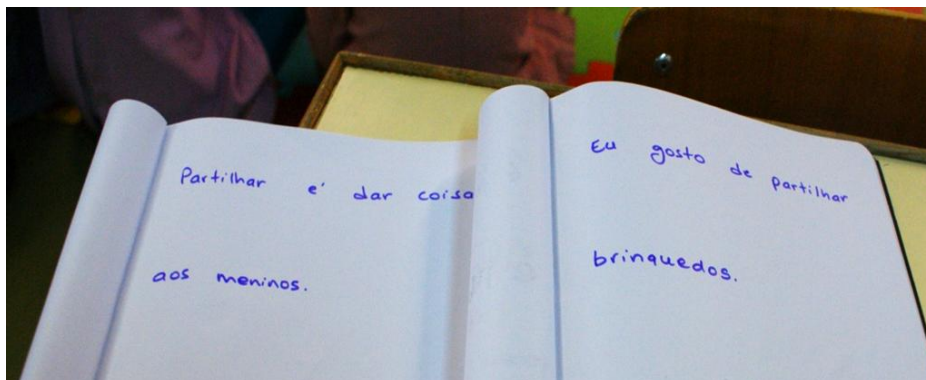 Partilhar é dar coisa
aos meninos.
Eu gosto de partilhar
brinquedos.